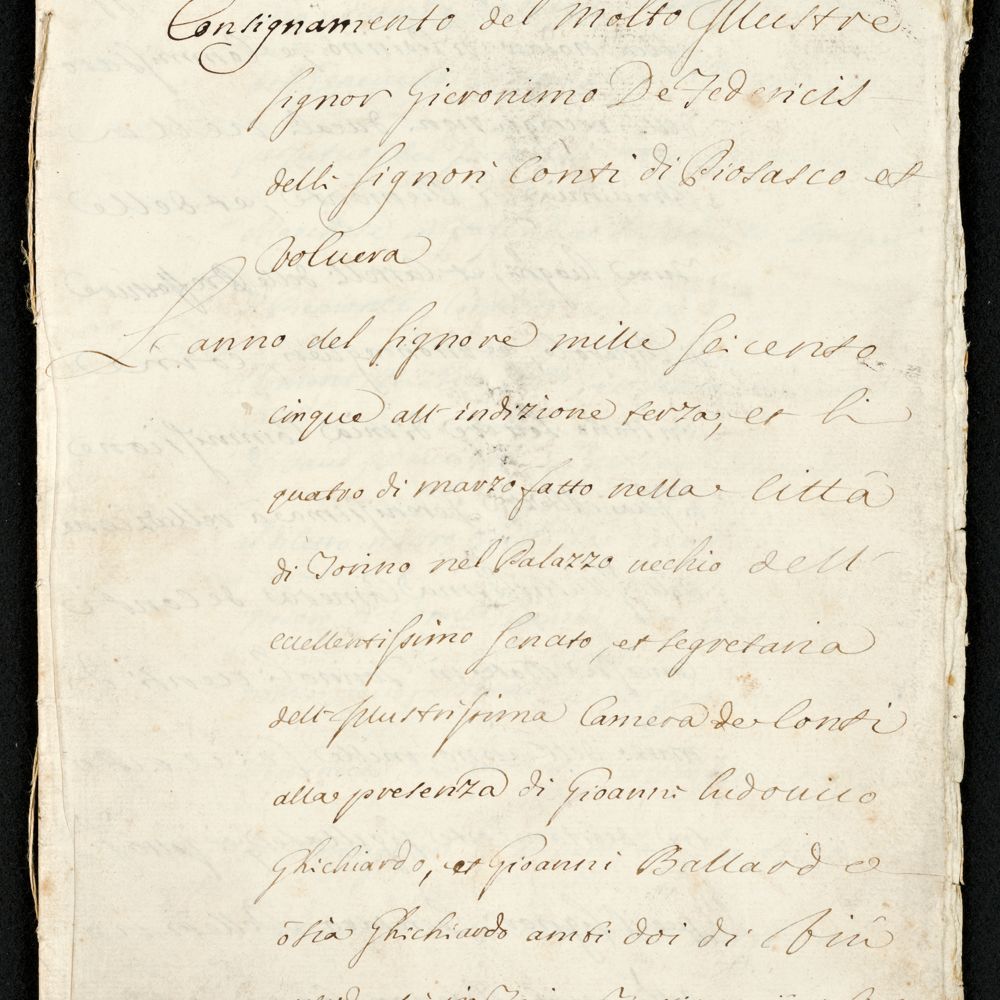 Consignamento del Molto Illustre
signor Gieronimo De Federicis
delli signori Conti di Piosasco et
volvera
L'anno del signore mille seicento
cinque all'indizione terza, et li
quatro di marzo fatto nella Città
di Torino nel Palazzo vechio dell'
eccellentissimo senato, et segretaria
dell'Illustrissima Camera de Conti
alla presenza di Gioanni Ludovico
Ghichiardo, et Gioanni Ballard e
ò sia Ghichiardo ambi doi di